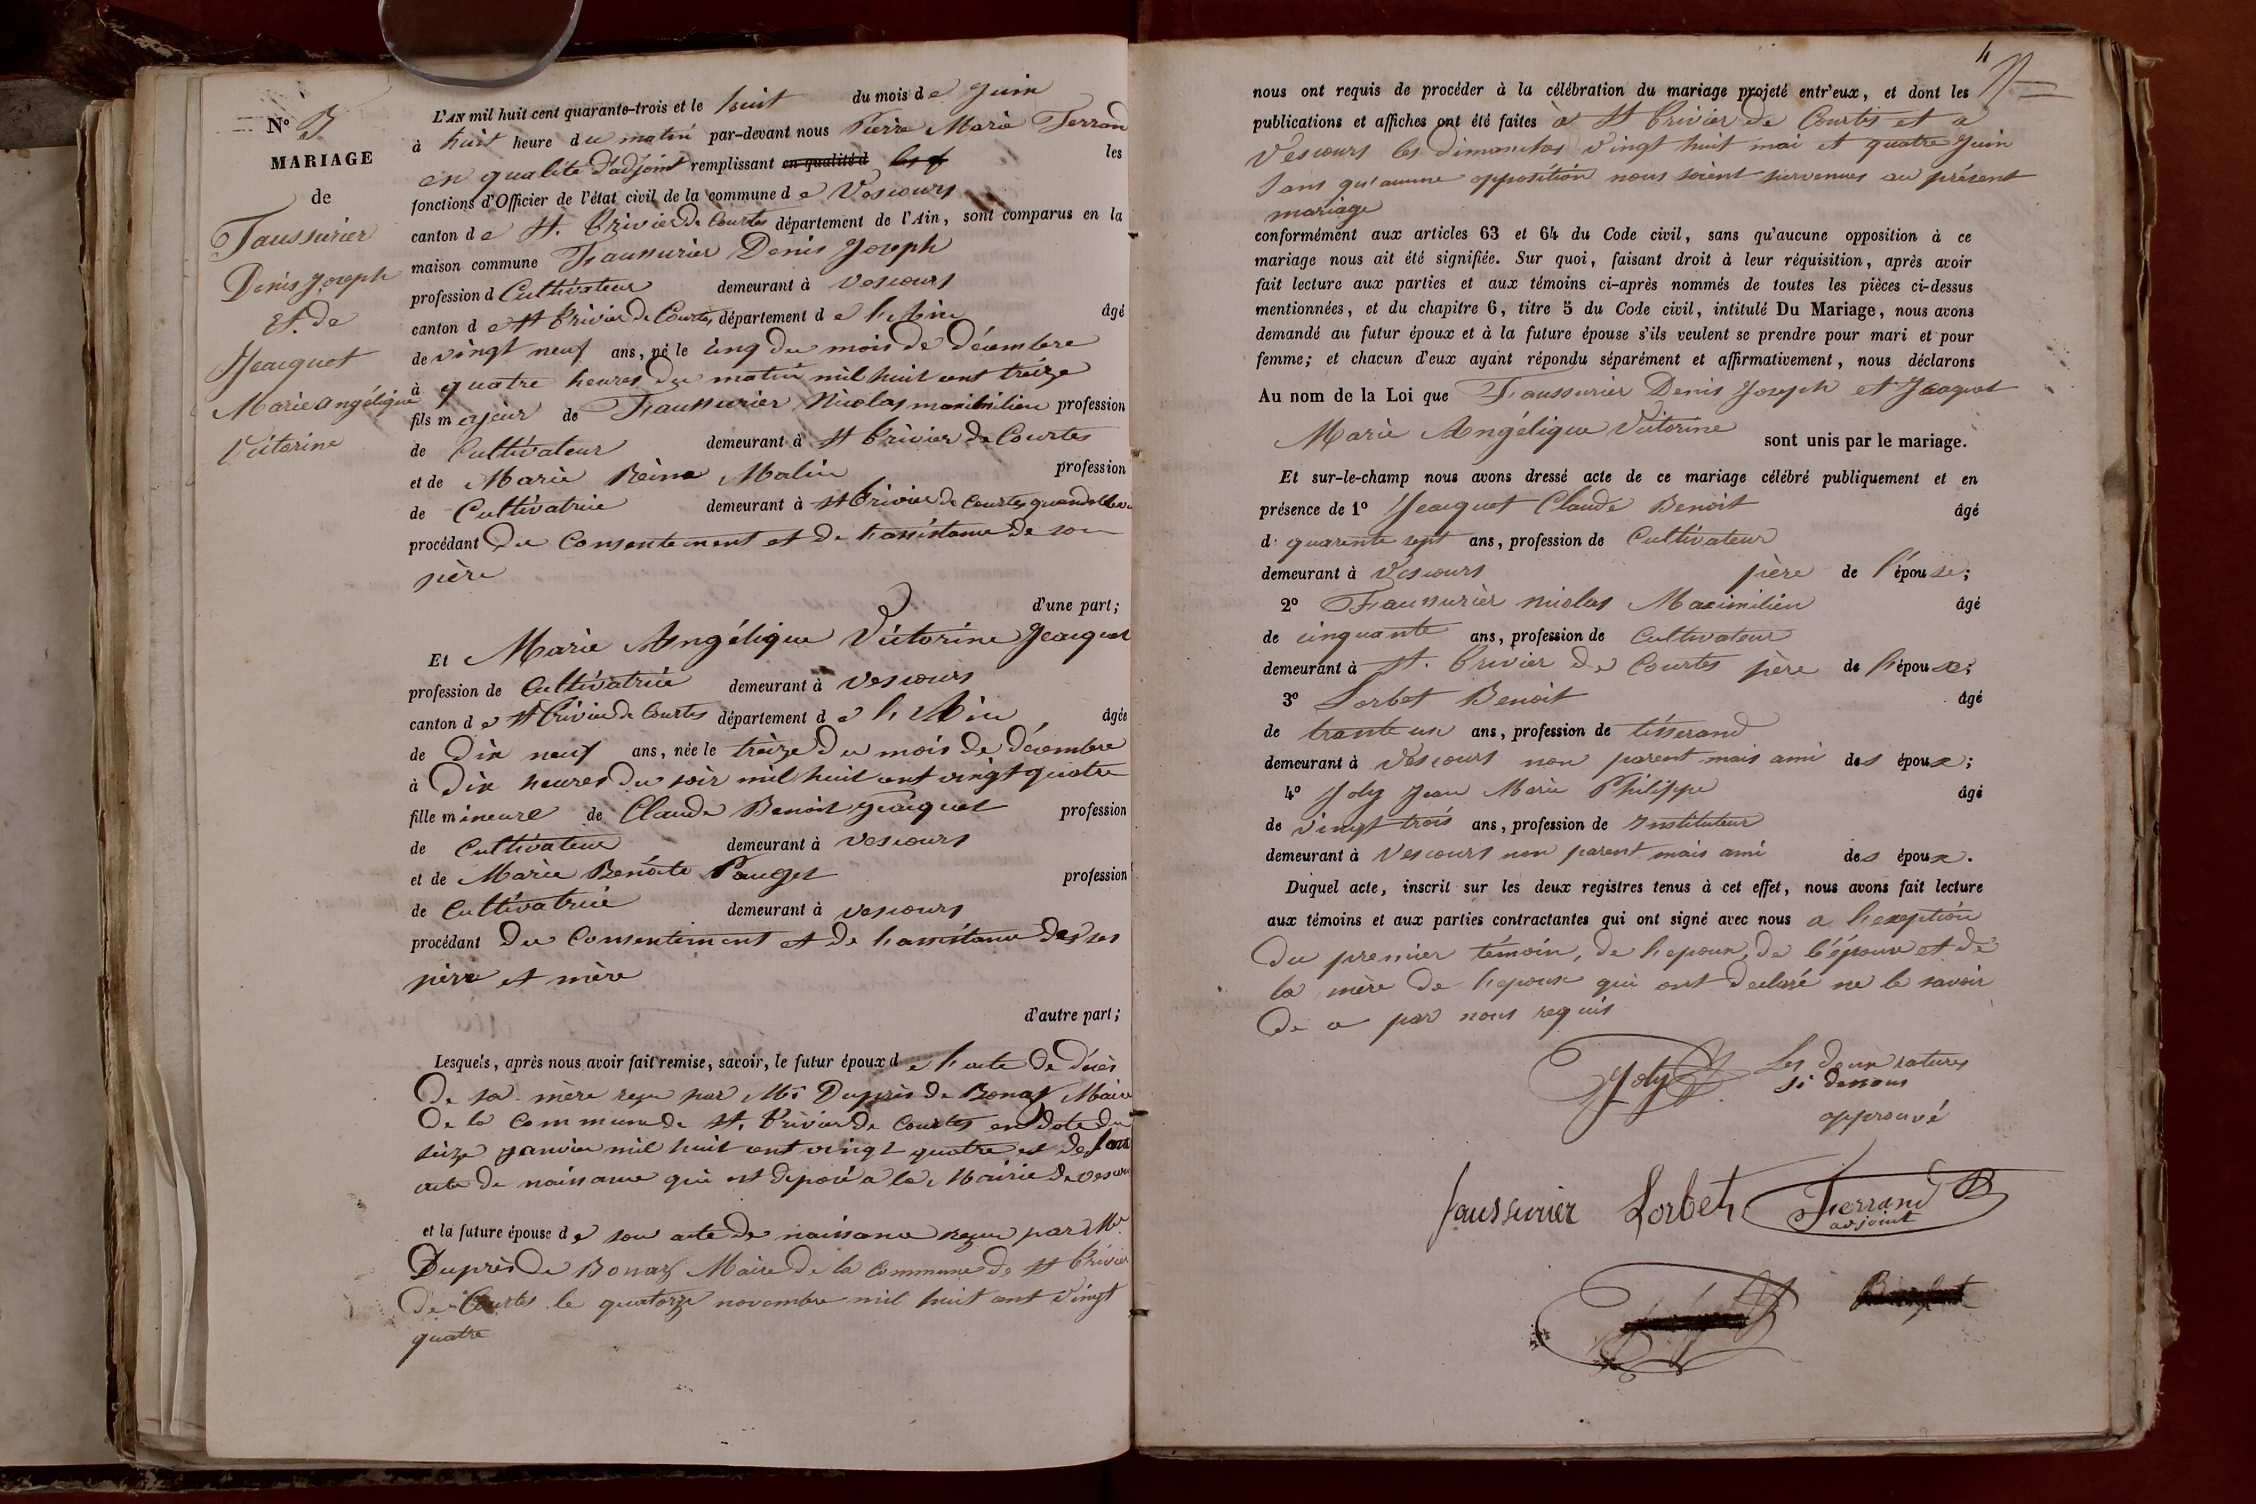 N° 3
MARIAGE
de
Faussurier
Denis Joseph
et de
Jeacquet
Marie Angélique
Victorine
L'AN mil huit cent quarante-trois et le huit du mois de Juin
à huit heure du matin par-devant nous Pierre Marie Ferrand
en qualité d'adjoint remplissant en qualité d les
fonctions d'Officier de l'état civil de la commune de Vescours
canton de St. Trivier de Courtes département de l'Ain, sont comparus en la
maison commune Faussurier Denis Joseph
profession d Cultivateur demeurant à Vescours
canton de St Trivier de Courtes département de l'Ain âgé
de vingt neuf ans, né le cinq du mois de décembre
à quatre heures du matin mil huit cent treize
fils majeur de Faussurier Nicolas maximilien profession
de Cultivateur demeurant à St Trivier de Courtes
et de Marie Reine Malin profession
de Cultivatrice demeurant à St Trivier de Courtes quand elle
procédant du Consentement et de l'assistance de son
père
d'une part;
Et Marie Angélique Victorine Jeacquet
profession de Cultivatrice demeurant à Vescours
canton de St Trivier de Courtes département de l'Ain, âgée
de dix neuf ans, née le treize du mois de décembre
à dix heures du soir mil huit cent vingt quatre
fille mineure de Claude Benoit Jeacquet profession
de Cultivateur demeurant à Vescours
et de Marie Benoite Pauget profession
de Cultivatrice demeurant à Vescours
procédant du Consentement et de l'assistance de ses
père et mère
d'autre part;
Lesquels, après nous avoir fait remise, savoir, le futur époux de l'acte de décès
de sa mère reçu par Mr Duprès de Bonas Maire
de la Commune de St. Trivier de Courtes en date du
seize janvier mil huit cent vingt quatre et de son
acte de naissance qui est déposé a la Mairie de Vescours
et la future épouse de son acte de naissance reçu par Mr
Duprès de Bonas Maire de la Commune de St Trivier
de Courtes le quatorze novembre mil huit cent vingt
quatre
4
nous ont requis de procéder à la célébration du mariage projeté entr'eux, et dont les
publications et affiches ont été faites à St Trivier de Courtes et a
Vescours les dimanches vingt huit mai et quatre Juin
sans qu'aucune opposition nous soient survenues au présent
mariage
conformément aux articles 63 et 64 du Code civil, sans qu'aucune opposition à ce
mariage nous ait été signifiée. Sur quoi, faisant droit à leur réquisition, après avoir
fait lecture aux parties et aux témoins ci-après nommés de toutes les pièces ci-dessus
mentionnées, et du chapitre 6, titre 5 du Code civil, intitulé Du Mariage, nous avons
demandé au futur époux et à la future épouse s'ils veulent se prendre pour mari et pour
femme; et chacun d'eux ayant répondu séparément et affirmativement, nous déclarons
Au nom de la Loi que Faussurier Denis Joseph et Jeacquet
Marie Angélique Victorine sont unis par le mariage.
Et sur-le-champ nous avons dressé acte de ce mariage célébré publiquement et en
présence de 1° Jeacquet Claude Benoit âgé
d. quarente sept ans, profession de Cultivateur
demeurant à Vescours père de l'épouse;
2° Faussurier nicolas Maximilien âgé
de cinquante ans, profession de Cultivateur
demeurant à St. Trivier de Courtes père de l'époux;
3° Lorbet Benoit âgé
de trante un ans, profession de tisserand
demeurant à Vescours non parent mais ami des époux;
4° Joly Jean Marie Philippe âgé
de vingt trois ans, profession de Instituteur
demeurant à Vescours non parent mais ami des époux.
Duquel acte, inscrit sur les deux registres tenus à cet effet, nous avons fait lecture
aux témoins et aux parties contractantes qui ont signé avec nous a l'exeption
du premier témoin, de l'epoux, de l'épouse et de
la mère de l'epoux qui ont declaré ne le savoir
de ce par nous requis
Joly Les deux ratures
si dessous
approuvé
faussurier Lorbet Ferrand
adjoint